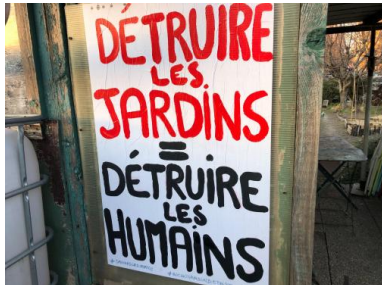 DÉTRUIRE
LES
JARDINS
=
DÉTRUIRE
LES
HUMAINS